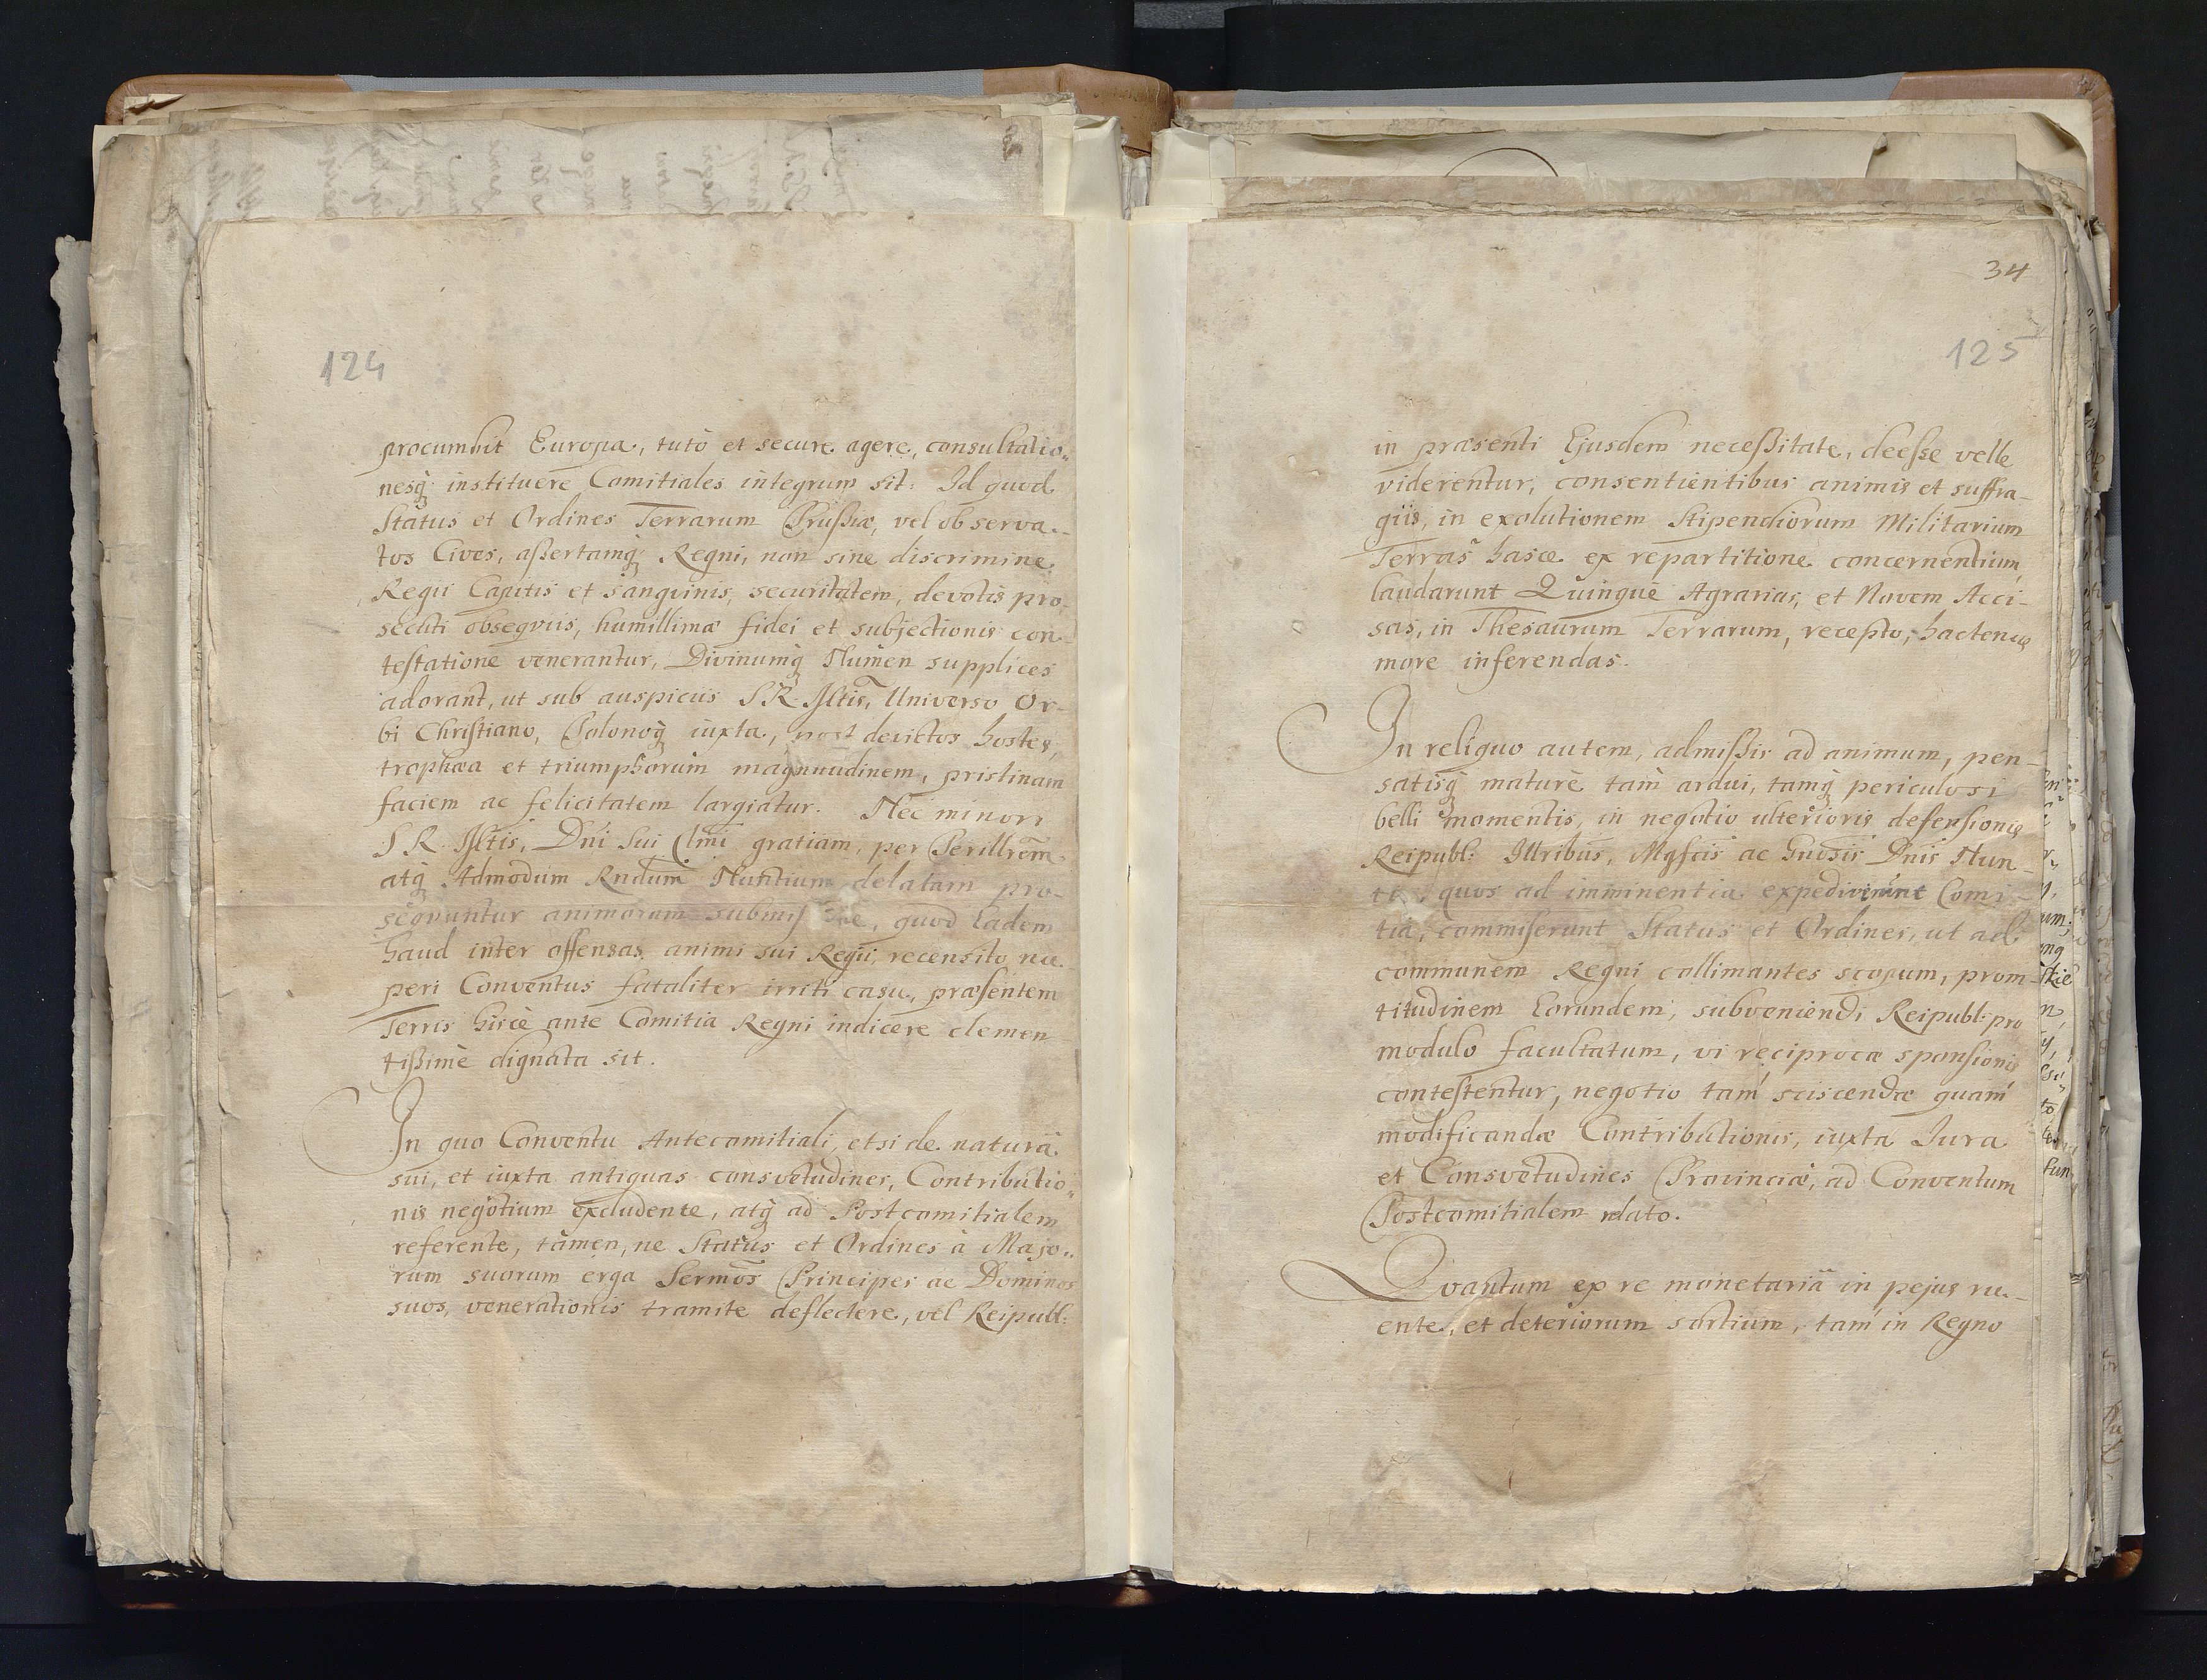 124
procumbit Europa, tutò et secure agere, consultatio„
nesq́ instituere Comitiales integrum sit: Id quod
Status et Ordines Terrarum Prußiæ, vel observa„
tos Cives, aßertamq́ Regni, non sine discrimine
Regii Capitis et sanguinis, securitatem, devotis pro„
secuti obsequiis, humillimæ fidei et subjectionis con„
testatione venerantur, Divinumq́ Numen supplices
adorant, ut sub auspiciis S R Mttis, Universo Or„
bi Christiano, Polonoq́ iuxta, post devictos hostes,
trophæa et triumphorum magnitudinem, pristinam
faciem ac felicitatem largiatur. Nec minori
S R Mttis, Dni sui Clmi gratiam, per Perillrem
atq́ Admodum Rndum Nuntium delatam pro„
seqvuntur animorum quod Eadem
haud inter offensas animi sui Regii, recensito nu„
peri Conventus fataliter irriti casu, præsentem
Terris hisce ante Comitia Regni indicere clemen„
tißimè dignata sit.
In quo Conventu Antecomitiali, etsi de naturâ
sui, et iuxta antiquas consvetudines, Contributio„
nis negotium excludente, atq́ ad Postcomitialem
referente, tamen, ne Status et Ordines à Majo„
rum suorum erga Sermos Principes ac Dominos
suos, venerationis tramite deflectere, vel Reipubl:
34
125
in præsenti Ejusdem neceßitate, deesse velle
viderentur, consentientibus animis et suffra„
giis, in exolutionem Stipendiorum Militarium
Terras hasce ex repartitione concernentium,
laudarunt Quinque Agrarias, et Novem Acci„
sas, in Thesaurum Terrarum, recepto hactenus
more inferendas.
In reliquo autem, admißis ad animum, pen„
satisq́ maturè tam ardui, tamq́ periculosi
belli momentis, in negotio ulterioris defensionis
Reipubl: Illribus, Mgfcis ac Gnosis Dnis Nun„
tiis, quos ad imminentia expediverunt Comi„
tia, commiserunt Status et Ordines, ut ad
communem Regni collimantes scopum, prom„
titudinem Eorundem, subveniendi Reipubl: pro
modulo facultatum, vi reciprocæ sponsionis
contestentur, negotio tam sciscendæ quam
modificandæ Contributionis, iuxta Jura
et Consvetudines Provinciæ, ad Conventum
Postcomitialem relato.
Qvantum ex re monetariâ in pejus ru„
ente, et deteriorum sortium, tam in Regno